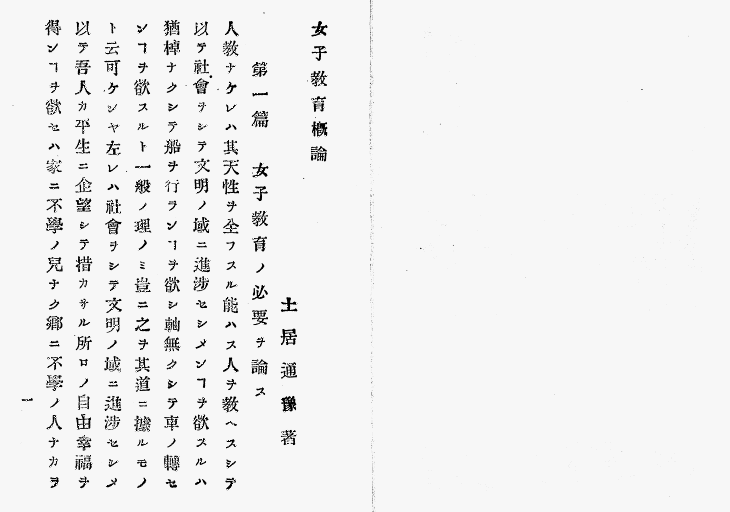 女子教育概論
土居通豫著
第一篇 女子教育ノ必要ヲ論ス
人教ナケレハ其天性ヲ全フスル能ハス人ヲ教ヘスシテ
以テ社會ヲシテ文明ノ域ニ進涉セシメンヿヲ欲スルハ
猶棹ナクシテ船ヲ行ランヿヲ欲シ軸無クシテ車ノ轉セ
ンヿヲ欲スルト一般ノ理ノミ豈ニ之ヲ其道ニ據ルモノ
ト云可ケンヤ左レハ社會ヲシテ文明ノ域ニ進涉セシメ
以テ吾人カ平生ニ企望シテ措カサル所ロノ自由幸福ヲ
得ンヿヲ欲セハ家ニ不學ノ兒ナク鄕ニ不學ノ人ナカラ
一